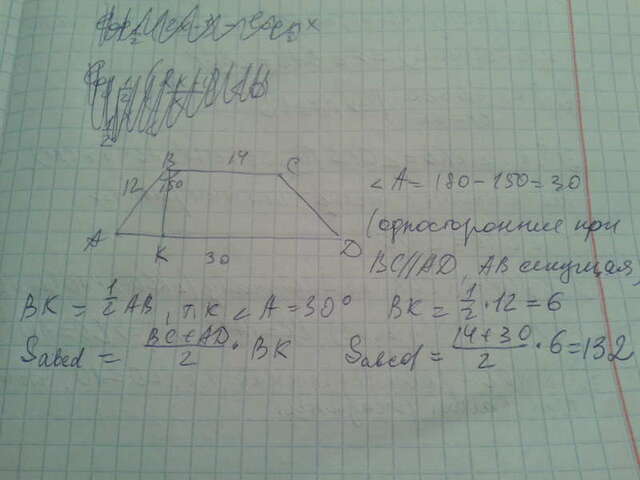 B 14 C
12 150
A K 30 D
<A = 180 - 150 = 30
(односторонние при
BC//AD, AB секущая)
BK = 1/2 AB, т.к < A = 30° BK = 1/2 · 12 = 6
Sabcd = BC+AD/2 · BK Sabcd = 14+30/2 · 6 = 132